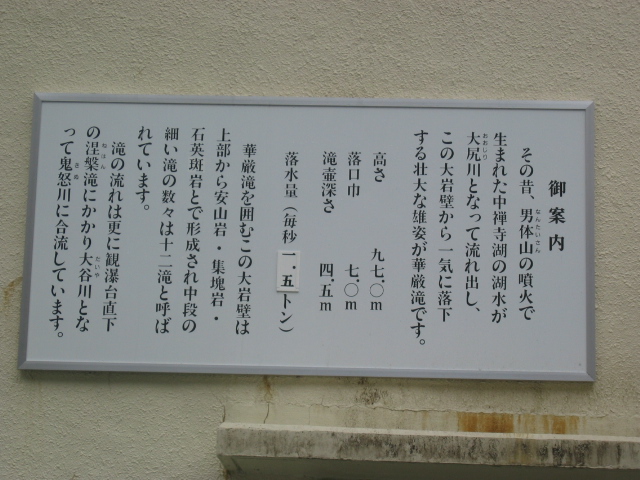 御案内
その昔、男体山の噴火で
なんたいさん
生まれた中禅寺湖の湖水が
大尻川となって流れ出し、
おおしり
この大岩壁から一気に落下
する壮大な雄姿が華厳滝です。
高さ 九七.〇m
落口巾 七.〇m
滝壷深さ 四.五m
落水量（毎秒 一.五トン）
華厳滝を囲むこの大岩壁は
上部から安山岩・集塊岩・
石英斑岩とで形成され中段の
細い滝の数々は十二滝と呼ば
れています。
滝の流れは更に観瀑台直下
の涅槃滝にかかり大谷川とな
ねはん だいや
って鬼怒川に合流しています。
きぬ